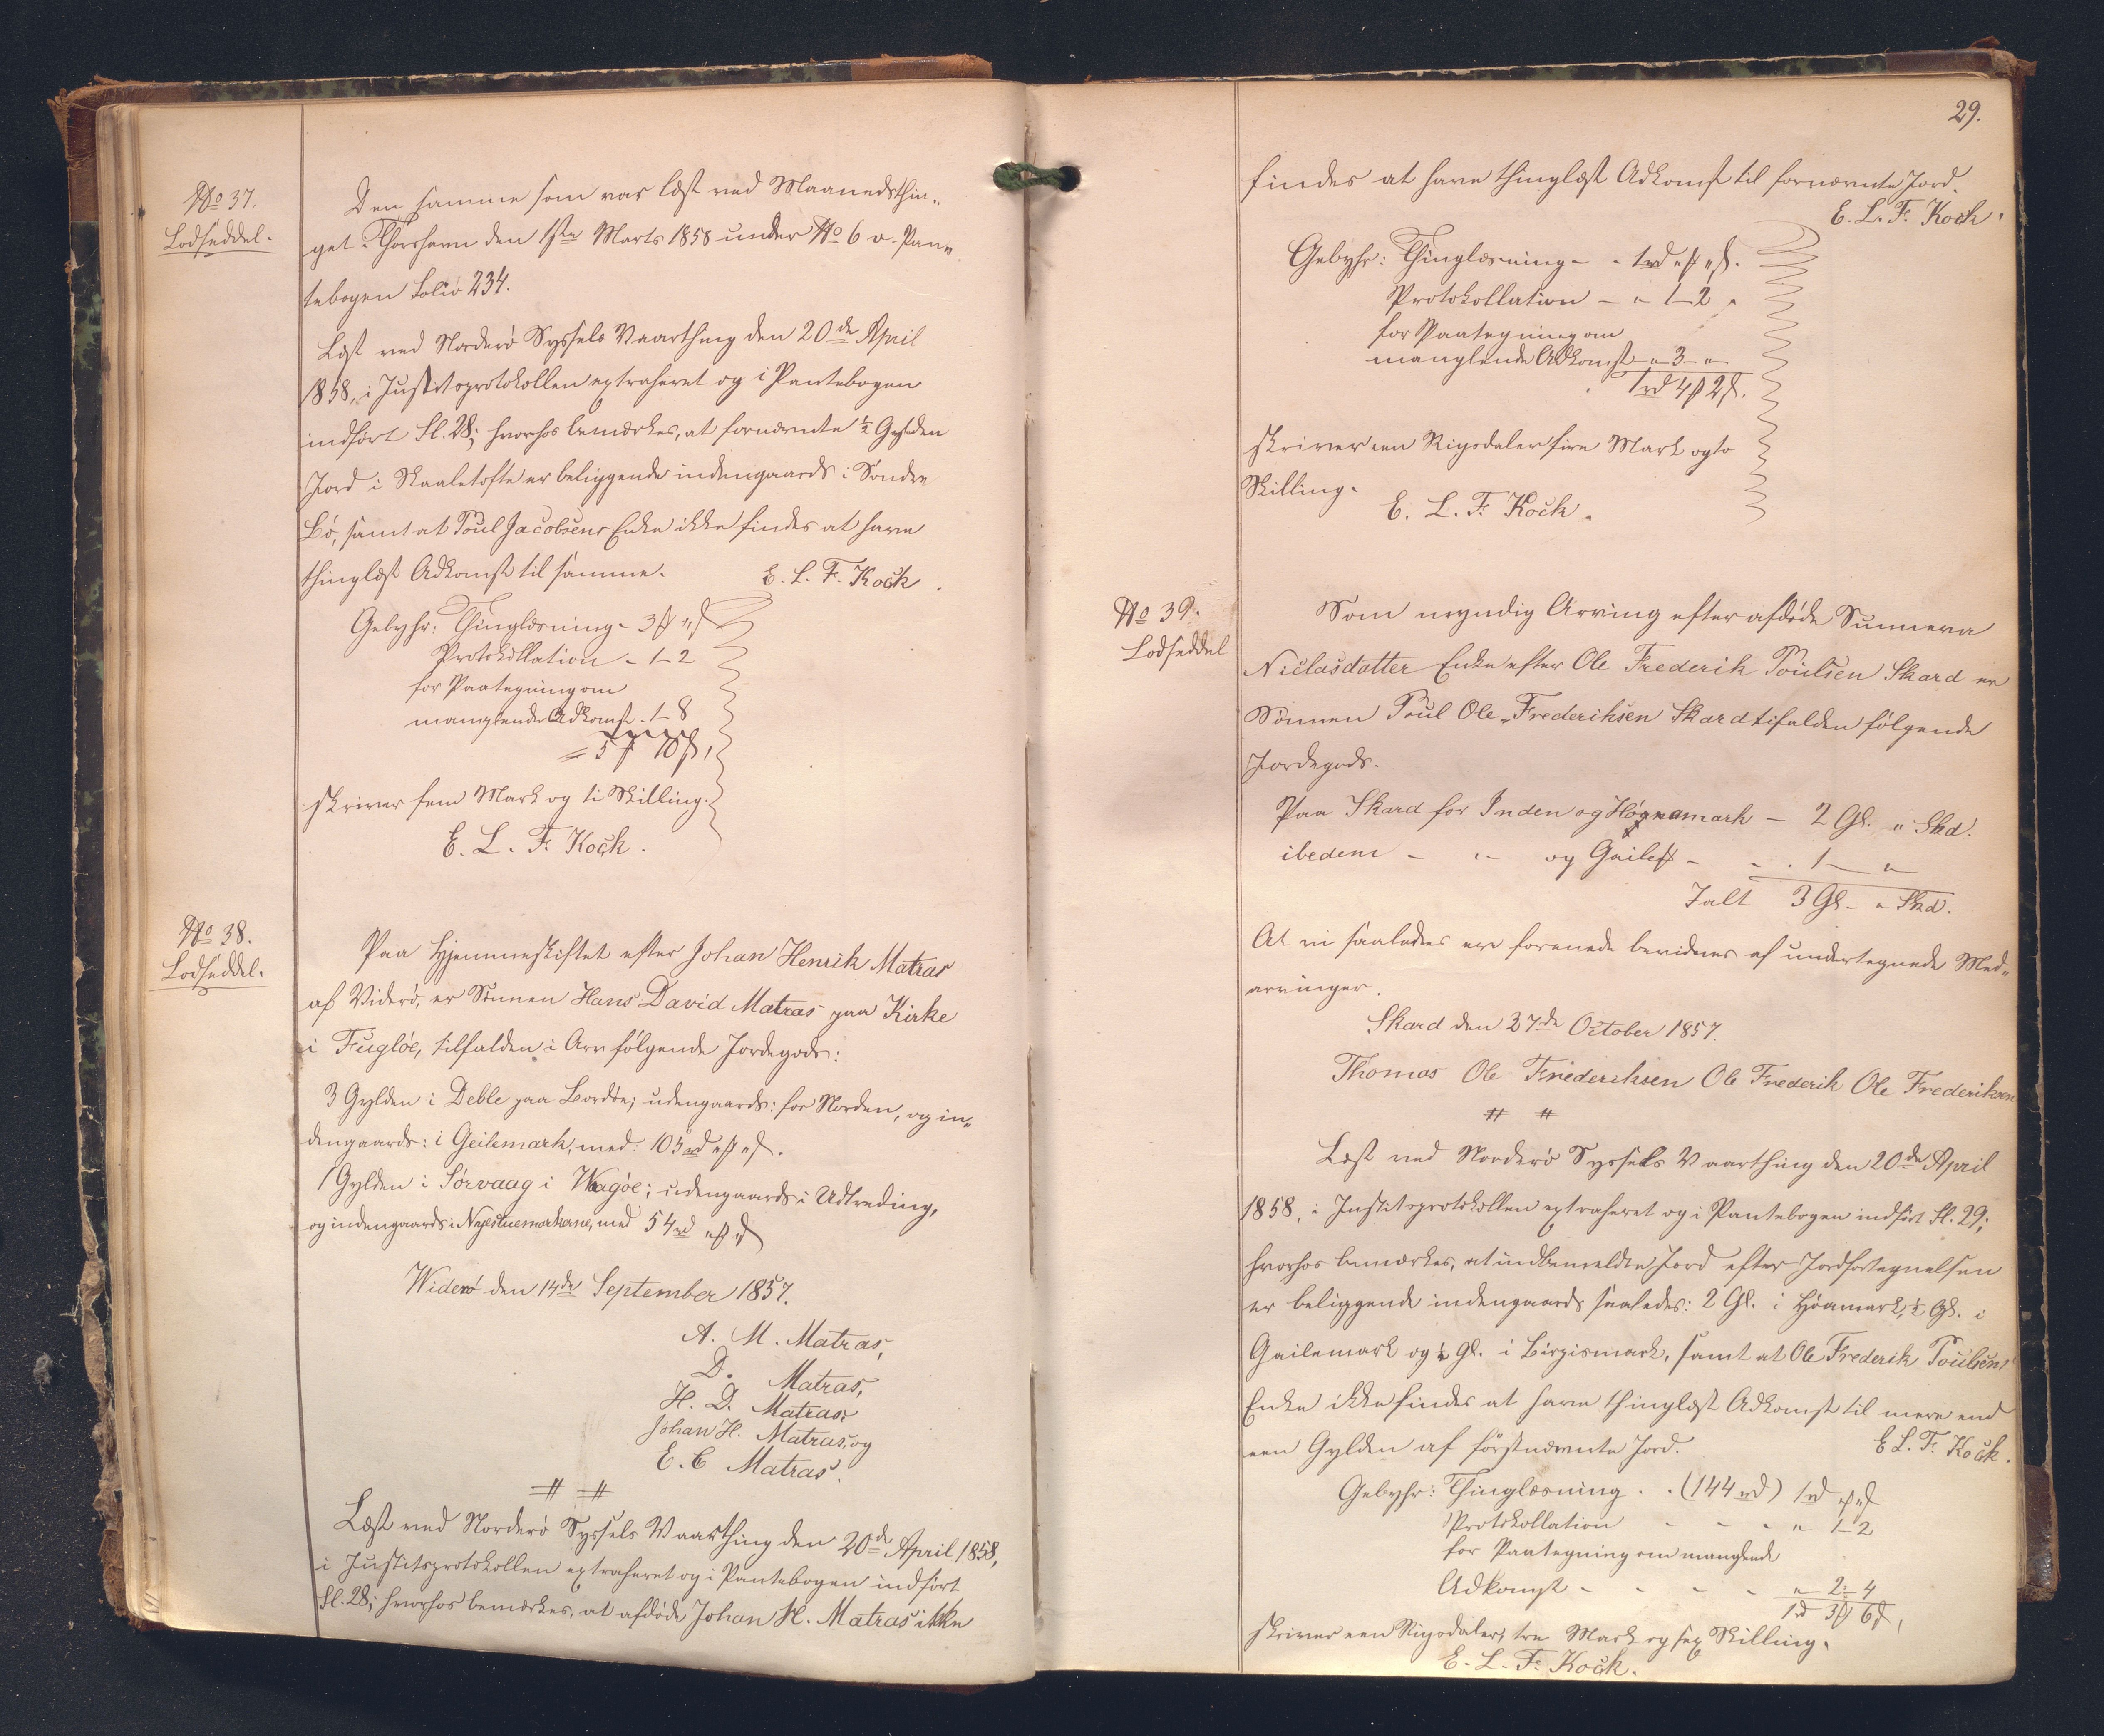 No 37.
Lodseddel.
Den samme som var læst ved Maanedsthin„
get i Thorshavn den 1ste Marts 1858 under No 6 v. Pan„
tebogen Folio 234.
Læst ved Norderø Syssels Vaarthing den 20de April
1858, i Justitsprotokollen extraheret og i Pantebogen
indført Fl. 28; hvorhos bemærkes, at fornævnte ½ Gylden
Jord i Skaaletofte er beliggende indengaards i Søndre
Bø, samt at Poul Jacobsens Enke ikke findes at have
thinglæst Adkomst til samme.
E. L. F. Koch.
Gebyhr: Thinglæsning - 3 ꝭ „ ꝭ
Protokollation - 1 - 2
for Paategning om
manglende Adkomst - 1 - 8
= 5 ꝭ 10 ꝭ,
skriver fem Mark og ti Skilling.
E. L. F. Koch.
No 38.
Lodseddel.
Paa Hjemmeskiftet efter Johan Henrik Matras
af Viderø, er Sønnen Hans David Matras paa Kirke
i Fugløe, tilfalden i Arv følgende Jordegods:
3 Gylden i Deble paa Bordøe; udengaards: for Norden, og in„
dengaards: i Geilemark, med 105 rd „ ꝭ „ ꝭ.
1 Gylden i Sørvaag i Wagøe; udengaards i Udtreding,
og indengaards i Nyestuemarkerne, med 54 rd „ ꝭ „ ꝭ
Widerø den 14de September 1857.
A. M. Matras,
D. Matras,
H. D. Matras,
Johan H. Matras, og
E. C Matras.
Læst ved Norderø Syssels Vaarthing den 20de April 1858,
i Justitsprotokollen extraheret og i Pantebogen indført
Fl. 28; hvorhos bemærkes, at afdøde Johan H. Matras ikke
29.
findes at have thinglæst Adkomst til fornævnte Jord.
E. L. F. Koch.
Gebyhr: Thinglæsning - - 1 rd „ ꝭ „ ꝭ.
Protokollation - „ 1 - 2 „
for Paategning om
manglende Adkomst - „ 3 - „
1 rd 4 ꝭ 2 ꝭ.
skriver een Rigsdaler fire Mark og to
Skilling.
E. L. F. Koch.
No 39.
Lodseddel
Som myndig Arving efter afdøde Sunneva
Niclasdatter Enke efter Ole Frederik Poulsen Skard er
Sønnen Poul Ole Frederiksen Skard tifalden følgende
Jordegods.
Paa Skard for Inden og Høgnamark - 2 Gl. „ Skd.
ibedem - „ - og Gailest - - . 1 - „
Ialt 3 Gl - „ Skd.
At vi saaledes ere forenede bevidnes af undertegnede Med„
arvinger.
Skard den 27de October 1857.
Thomas Ole Frederiksen Ole Frederik Ole Frederiksen
Læst ved Norderø Syssels Vaarthing den 20de April
1858, i Justitsprotokollen extraheret og i Pantebogen indført Fl. 29;
hvorhos bemærkes, at indbemeldte Jord efter Jordfortegnelsen
er beliggende indengaards saaledes: 2 Gl. i Høamark, ½ Gl. i
Gailemark og ½ Gl. i Birgismark, samt at Ole Frederik Poulsens
Enke ikke findes at have thinglæst Adkomst til mere end
een Gylden af førstnævnte Jord.
E L. F. Koch.
Gebyhr: Thinglæsning . . (144 rd) 1 rd „ ꝭ „ ꝭ
Protokollation - - - „ 1 - 2
for Paategning om manglende
Adkomst - - - - „ 2 - 4
1 rd 3 ꝭ 6 ꝭ,
skriver een Rigsdaler, tre Mark og sex Skilling.
E. L. F. Koch.